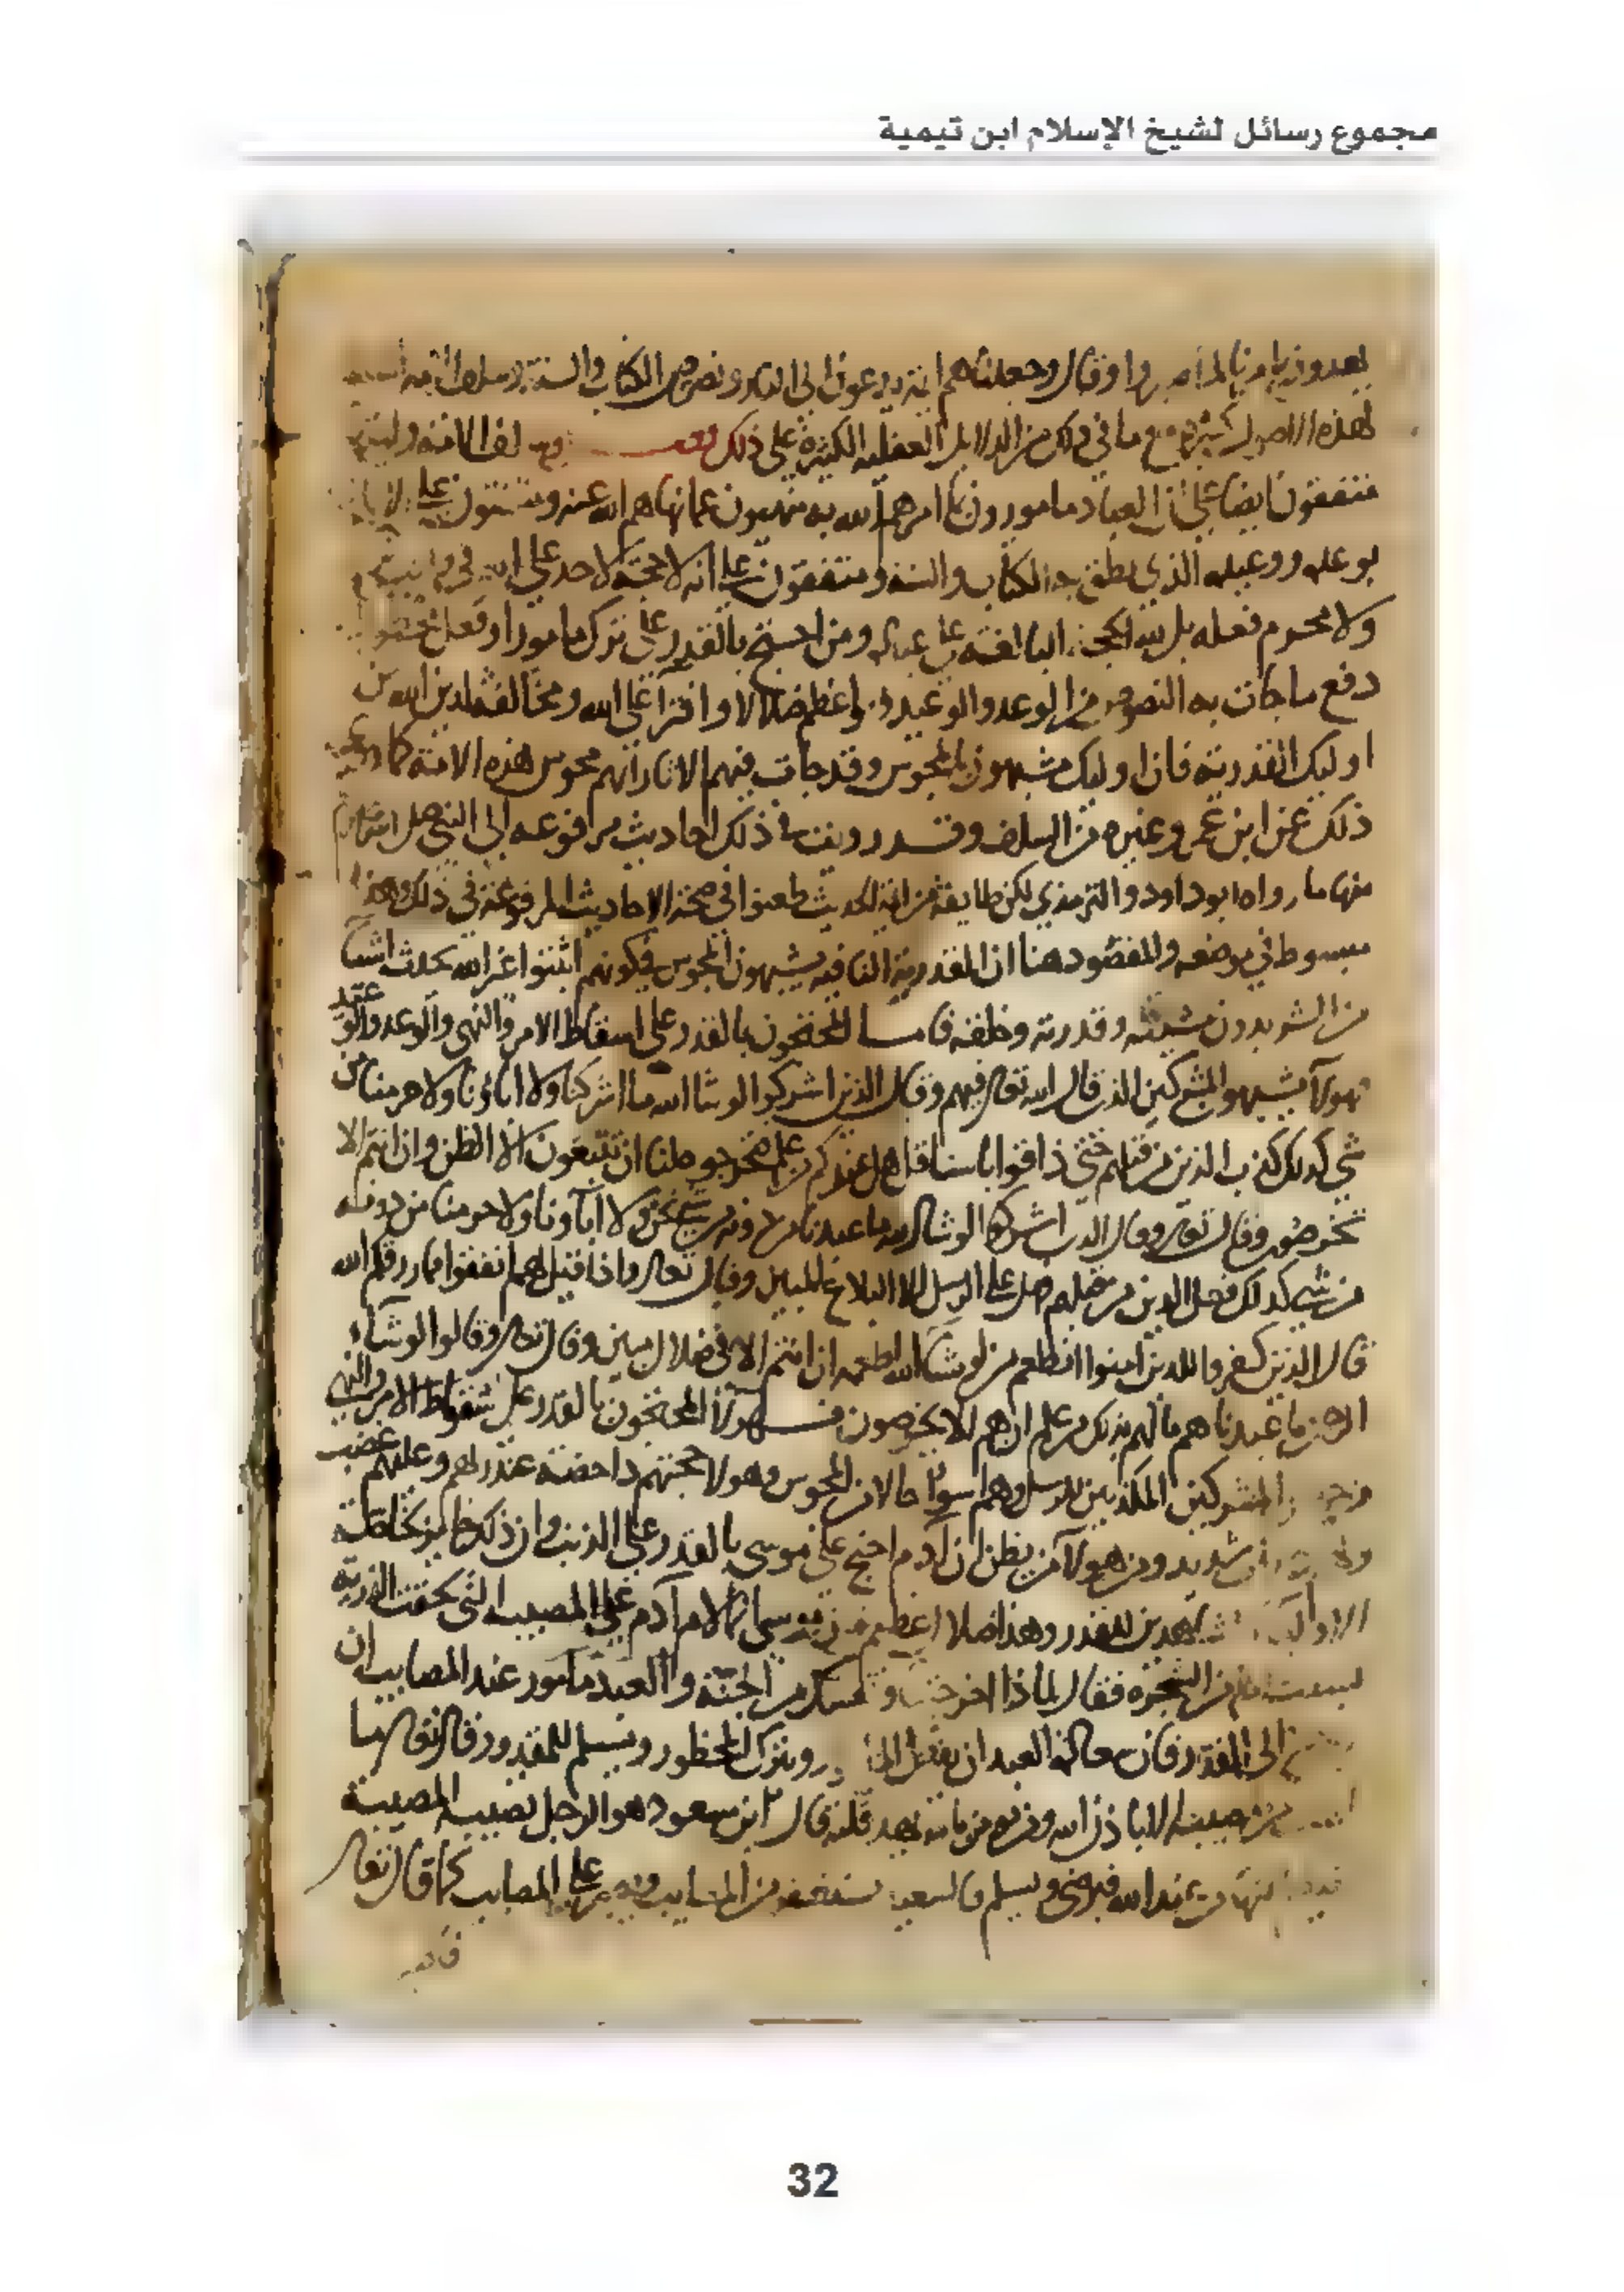 مجموع رسائل لشيخ الإسلام ابن تيمية
يهدون بامرنا لما صبروا وقال وجعلناهم ائمة يدعون الى النار ونصوص الكتاب والسنة وسلف الامة
لهذه الاصول كثيرة مع ما في ذلك من الدلايل العقلية الكثيرة على ذلك وسلف الامة وايمتها
متفقون ايضا على ان العباد مامورون بما امرهم الله به منهيون عما نهاهم الله عنه ومتفقون على الايمان
بوعده ووعيده الذي نطق به الكتاب والسنة ومتفقون على انه لا حجة لاحد على الله في واجب تركه
ولا محرم فعله بل لله الحجة البالغة على عباده ومن احتج بالقدر على ترك مامور او فعل محظور
دفع ما جات به النصوص من الوعد والوعيد اعظم ضلالا وافتراء على الله ومخالفة لدين الله من
اوليك القدرية فان اوليك مشبهون بالمجوس وقد جات فيهم الاثار انهم مجوس هذه الامة كما روي
ذلك عن ابن عمر وغيره من السلف وقد رويت في ذلك احاديث مرفوعة الى النبي صلى الله
منها ما رواه ابو داود والترمذي لكن طايفة من ايمة الحديث طعنوا في صحة الاحاديث المرفوعة في ذلك وهذا
مبسوط في موضعه والمقصود هنا ان القدرية النافية يشبهون المجوس في كونهم اثبتوا غير الله يحدث اشيآ
من الشر بدون مشيئته وقدرته وخلقه فاما المحتجون بالقدر على اسقاط الامر والنهي والوعد والوعيد
فهولآ يشبهوا المشركين الذين قال الله تعالى فيهم وقال الذين اشركوا لو شا الله ما اشركنا ولا اباونا ولا حرمنا من
شي كذلك كذب الذين من قبلهم حتى ذاقوا باسنا قل هل عندكم من علم فتخرجوه لنا ان تتبعون الا الظن وان انتم الا
تخرصون وقال تعالى وقال الذين اشركوا لو شا الله ما عبدنا من دونه من شي نحن ولا اباونا ولا حرمنا من دونه
من شي كذلك فعل الذين من قبلهم فهل على الرسل الا البلاغ المبين وقال تعالى واذا قيل لهم انفقوا مما رزقكم الله
قال الذين كفروا للذين امنوا انطعم من لو شآ الله اطعمه ان انتم الا في ضلال مبين وقال تعالى وقالوا لو شآء
الرحمن ما عبدناهم ما لهم بذلك من علم ان هم الا يخرصون فهولآ المحتجون بالقدر على سقوط الامر والنهي
من جنس المشركين المكذبين للرسل وهم اسوا حالا من المجوس وهولا حجتهم داحضة عند ربهم وعليهم غضب
ولهم عذاب شديد ومن هولآ من يظن ان آدم احتج على موسى بالقدر على الذنب وان ذلك جايز لخاصة
الاولياء المشاهدين للقدر وهذا ضلال عظيم فان موسى انما لام آدم على المصيبة التي لحقت الذرية
بسبب اكله من الشجرة فقال لماذا اخرجتنا ونفسك من الجنة والعبد مامور عند المصايب ان
يرجع الى القدر فان سعادة العبد ان يفعل المامور ويترك المحظور ويسلم للمقدور قال تعالى ما
اصاب من مصيبة الا باذن الله ومن يومن بالله يهد قلبه قال ابن مسعود هو الرجل تصيبه المصيبة
فيعلم انها من عند الله فيرضى ويسلم فالسعيد يستغفر من المعايب ويصبر على المصايب كما قال تعالى
فاصبر
32